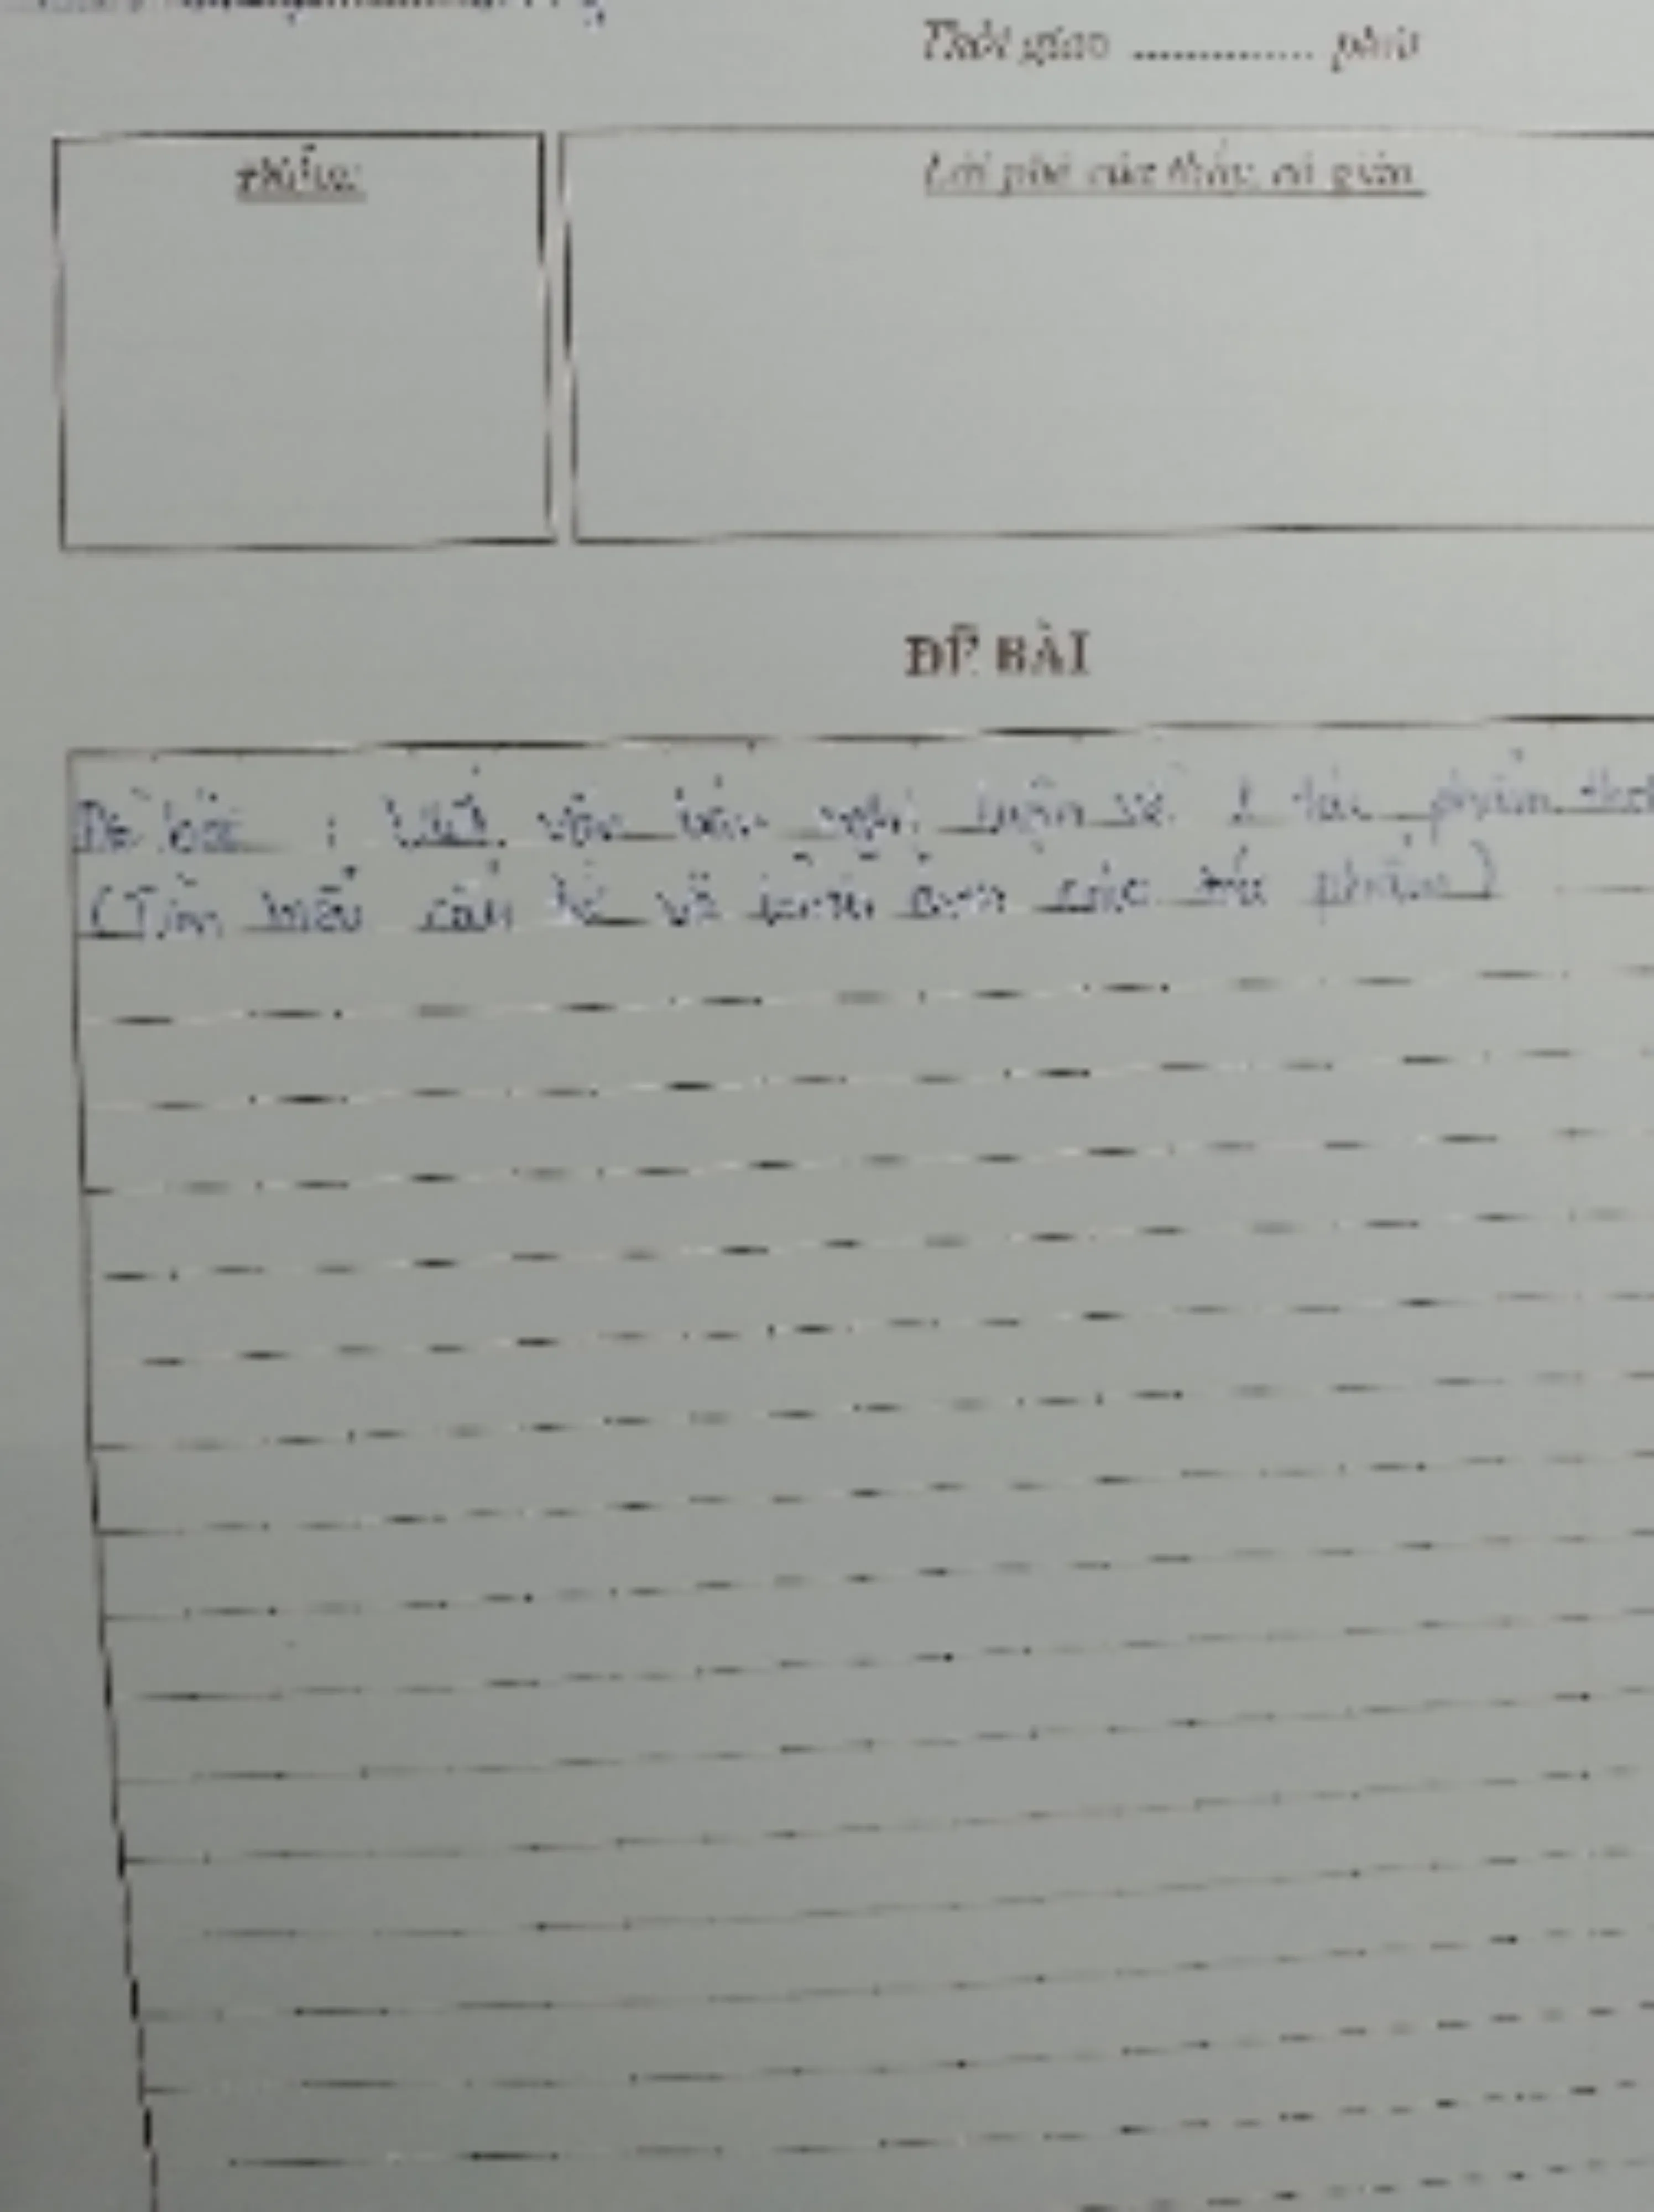 Thời gian ............. phút
Điểm:
Lời phê của thầy, cô giáo
ĐỀ BÀI
Đề bài : Viết văn bản nghị luận về 1 tác phẩm thơ
(Tìm hiểu cấu tứ và hình ảnh của tác phẩm)